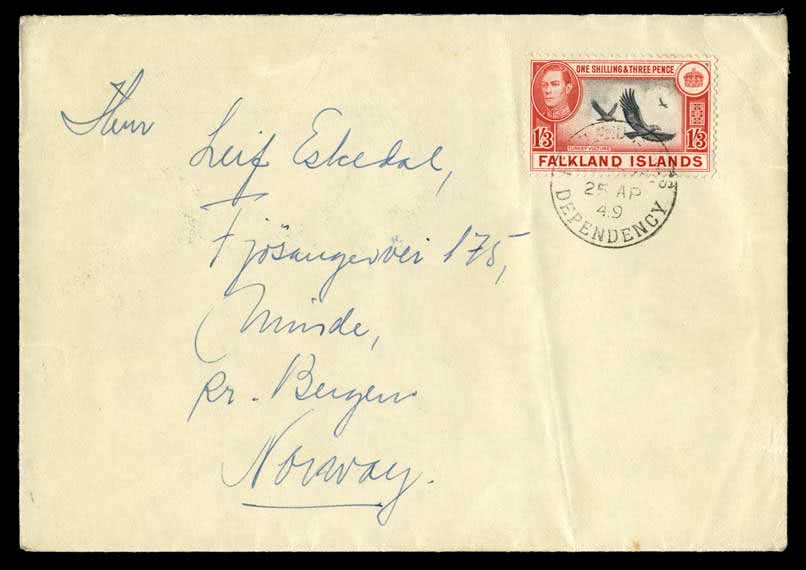 ONE SHILLING & THREE PENCE
1/3 1/3
TURKEY VULTURE
FALKLAND ISLANDS
25 AP
49
DEPENDENCY
Herr Leif Eskedal,
Fjösangervei 175,
Minde,
pr. Bergen
Norway.